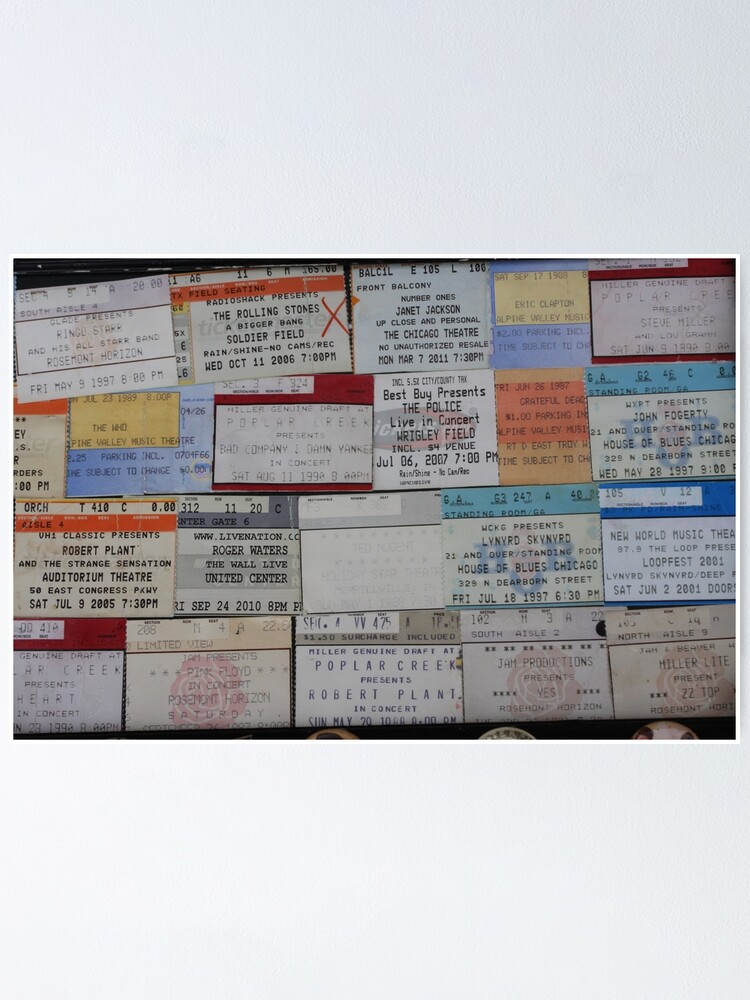 SEC 4 S 14 A 20.00
SOUTH AISLE 4
GLACE PRESENTS
RINGO STARR
AND HIS ALL STARR BAND
ROSEMONT HORIZON
FRI MAY 9 1997 8:00 PM
A6 11 6 M 165.00
TX FIELD SEATING
RADIOSHACK PRESENTS
THE ROLLING STONES
A BIGGER BANG
SOLDIER FIELD
RAIN/SHINE-NO CAMS/REC
WED OCT 11 2006 7:00PM
BALC1L E 105 L 106
FRONT BALCONY
NUMBER ONES
JANET JACKSON
UP CLOSE AND PERSONAL
THE CHICAGO THEATRE
NO UNAUTHORIZED RESALE
MON MAR 7 2011 7:30PM
SAT SEP 17 1988 8
ERIC CLAPTON
ALPINE VALLEY MUSI
$2.00 PARKING INCL.
TIME SUBJECT TO CH
MILLER GENUINE DRAFT
POPLAR CREE
PRESENTS
STEVE MILLER
AND LOU GRAMM
SAT JUN 9 1990 8
EY
S.
RDERS
:00 PM
JUL 23 1989 8:00P
THE WHO
PINE VALLEY MUSIC THEATRE
2.25 PARKING INCL.
IME SUBJECT TO CHANGE
04/26
0704F66
SEC. 3 F 324
MILLER GENUINE DRAFT AT
POPLAR CREEK
PRESENTS
BAD COMPANY & DAMN YANKE
IN CONCERT
SAT AUG 11 1990 8:00PM
INCL 5.5% CITY/COUNTY TAX
Best Buy Presents
THE POLICE
Live in Concert
WRIGLEY FIELD
INCL. $4 VENUE
Jul 06, 2007 7:00 PM
Rain/Shine - No Cam/Rec
RI JUN 26 1987
GRATEFUL DEAD
$1.00 PARKING IN
RT D EAST TROY W
TIME SUBJECT TO CH
G.A. G2 46 C
STANDING ROOM/GA
WXRT PRESENTS
JOHN FOGERTY
21 AND OVER/STANDING ROOM
HOUSE OF BLUES CHICAG
329 N DEARBORN STREET
WED MAY 28 1997 9:00 P
ORCH T 410 C 0.00
AISLE 4
VH1 CLASSIC PRESENTS
ROBERT PLANT
AND THE STRANGE SENSATION
AUDITORIUM THEATRE
50 EAST CONGRESS PKWY
SAT JUL 9 2005 7:30PM
312 11 20 C
ENTER GATE 6
WWW.LIVENATION.CO
ROGER WATERS
THE WALL LIVE
UNITED CENTER
FRI SEP 24 2010 8PM
TED NUGENT
HOLIDAY STAR THEATR
G.A. G3 247 A 40.00
STANDING ROOM/GA
WCKG PRESENTS
LYNYRD SKYNYRD
21 AND OVER/STANDING ROOM
HOUSE OF BLUES CHICAG
329 N DEARBORN STREET
FRI JUL 18 1997 6:30 PM
105 V 12 A
NEW WORLD MUSIC THEA
97.9 THE LOOP PRESE
LOOPFEST 2001
LYNYRD SKYNYRD/DEEP P
SAT JUN 2 2001 DOORS
DD 410
GENUINE DRAFT AT
LAR CREEK
PRESENTS
HEART
IN CONCERT
1990 8:00PM
208 M 4 A 22.5
LIMITED VIEW
JAM PRESENTS
PINK FLOYD
IN CONCERT
ROSEMONT HORIZON
SATURDAY
SEC. 4 VV 475 A
$1.50 SURCHARGE INCLUDED
MILLER GENUINE DRAFT AT
POPLAR CREEK
PRESENTS
ROBERT PLANT
IN CONCERT
SUN MAY 29 1988 8:00 PM
102 M 3 A 22
SOUTH AISLE 2
JAM PRODUCTIONS
PRESENTS
YES
ROSEMONT HORIZON
NORTH AISLE 9
JAM & BEAVER
MILLER LITE
PRESENTS
ZZ TOP
ROSEMONT HORI